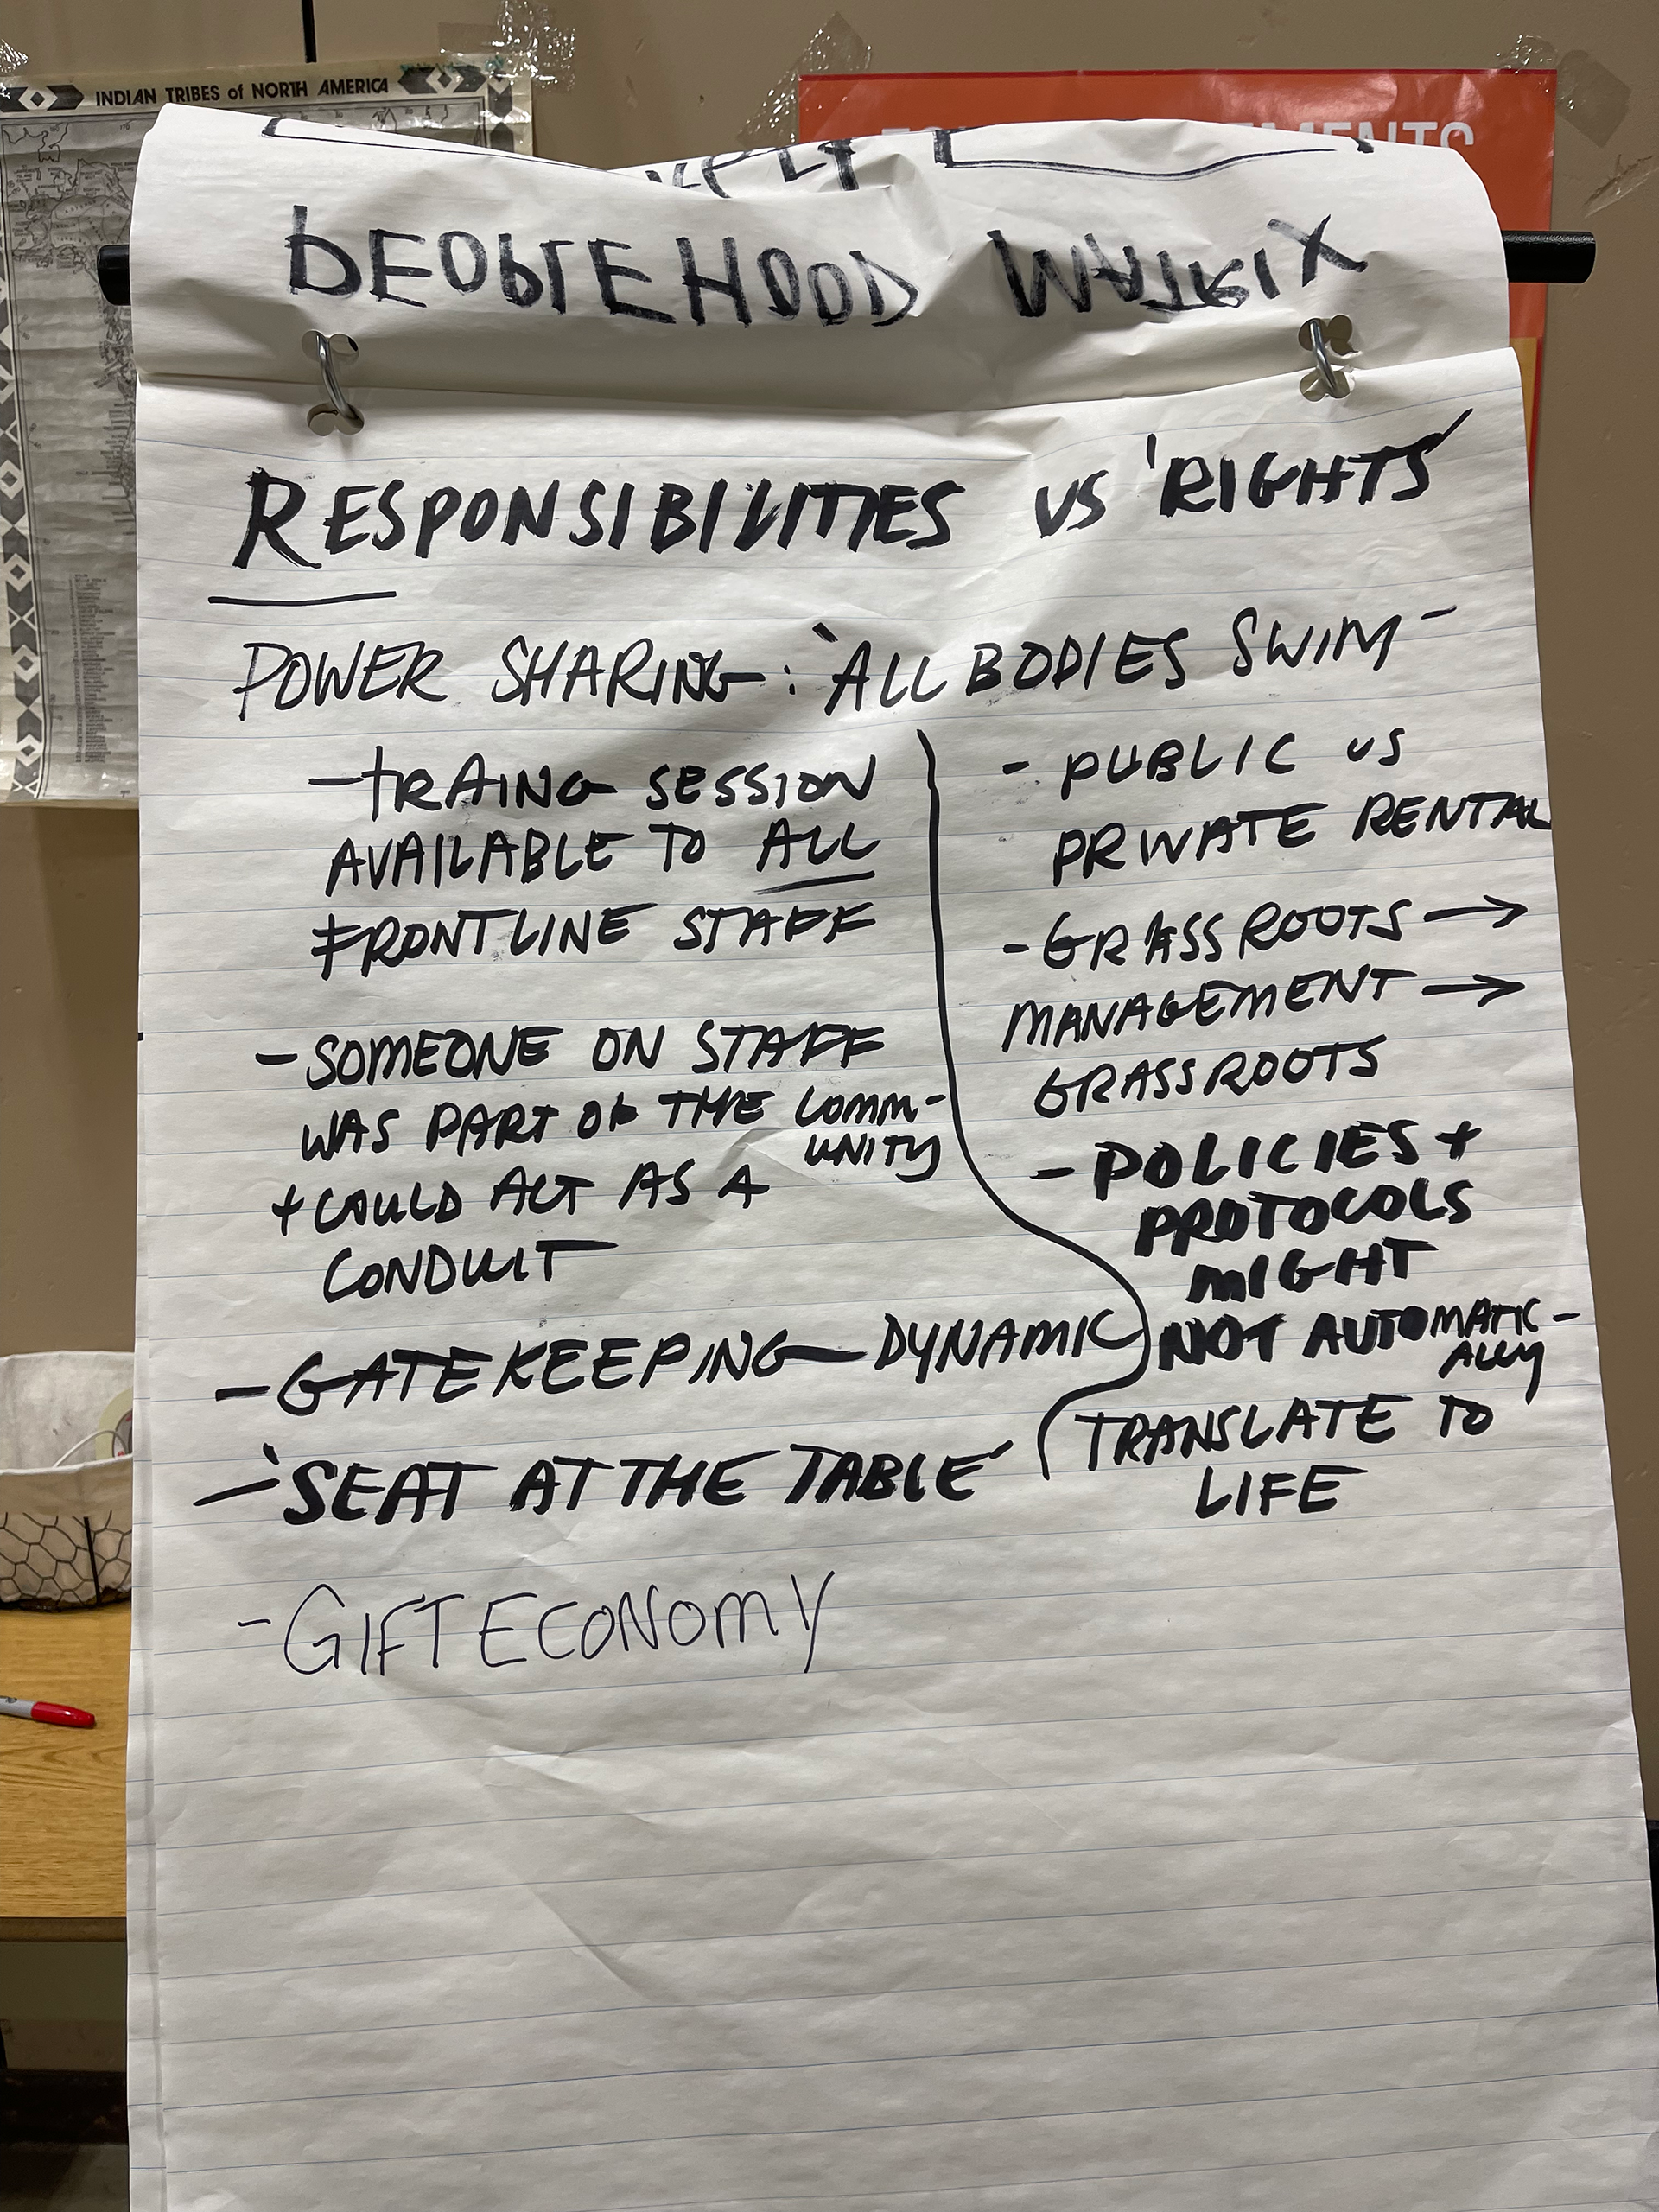 INDIAN TRIBES of NORTH AMERICA
PEOPLEHOOD MATRIX
RESPONSIBILITIES VS 'RIGHTS'
POWER SHARING: 'ALL BODIES SWIM'
- TRAING SESSION
AVAILABLE TO ALL
FRONTLINE STAFF
- SOMEONE ON STAFF
WAS PART OF THE COMM-
UNITY
+ COULD ACT AS A
CONDUIT
- GATEKEEPING DYNAMIC
- 'SEAT AT THE TABLE'
- GIFT ECONOMY
- PUBLIC VS
PRIVATE RENTAL
- GRASSROOTS →
MANAGEMENT →
GRASSROOTS
- POLICIES +
PROTOCOLS
MIGHT
NOT AUTOMATIC-
ALLY
TRANSLATE TO
LIFE